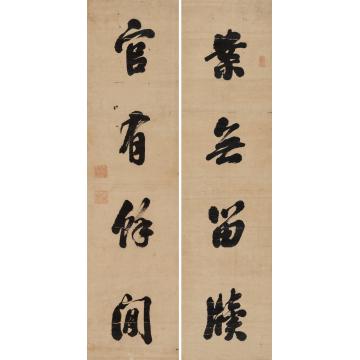 案無留牘
官有餘閒